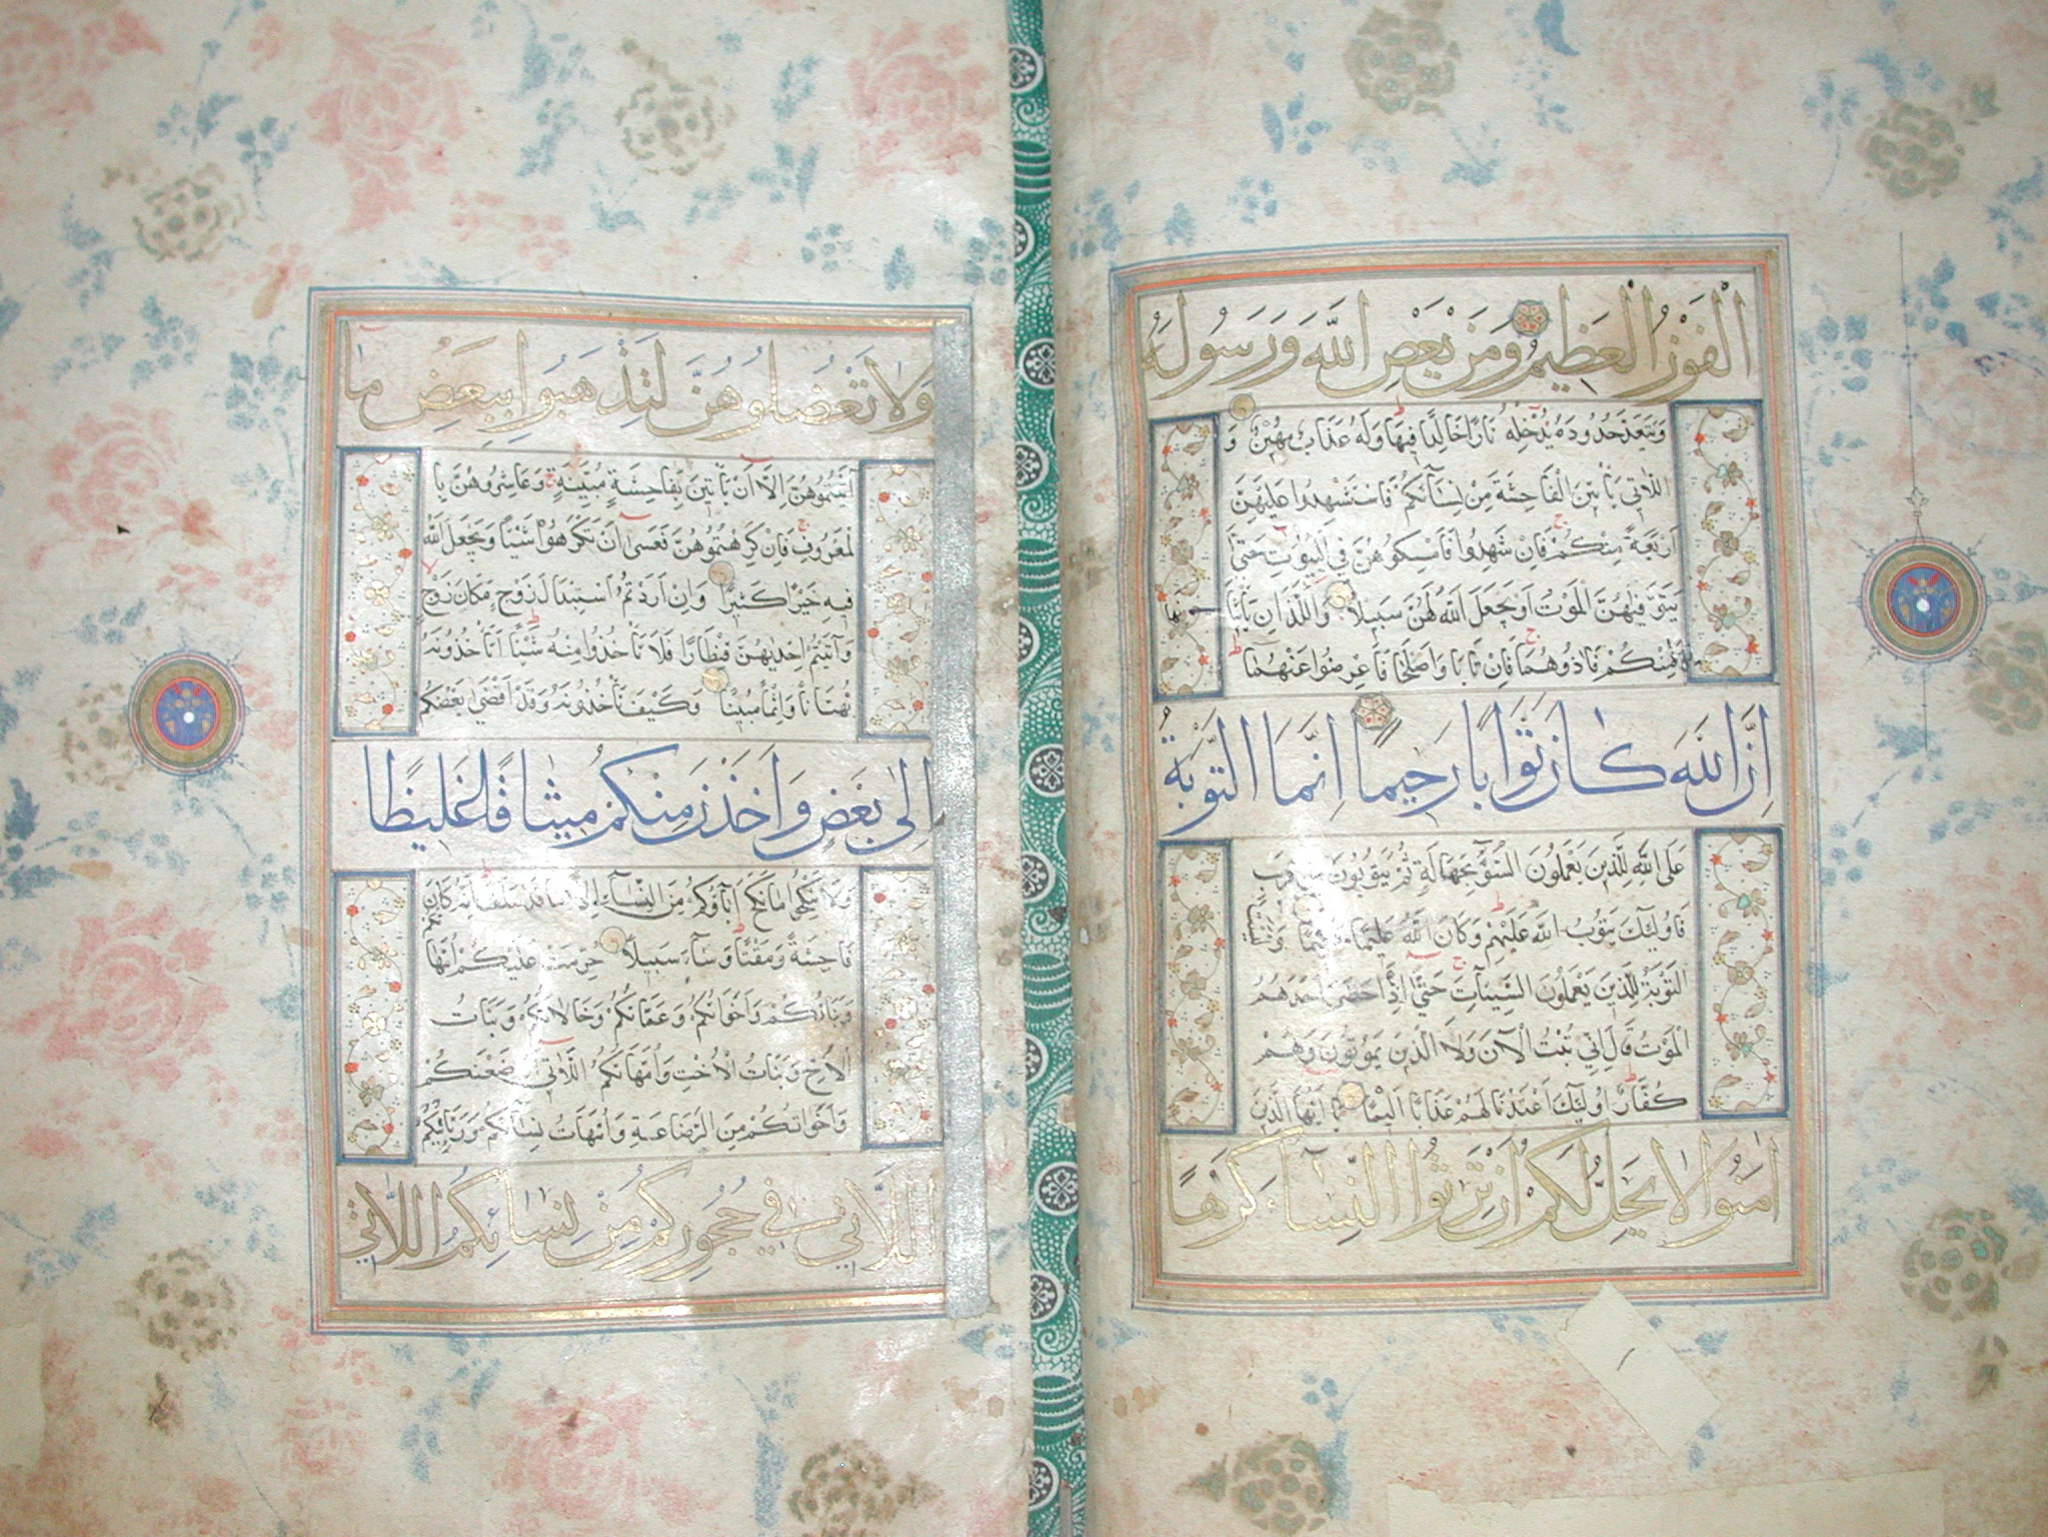 الْفَوْزُ الْعَظِيمُ وَمَنْ يَعْصِ اللّٰهَ وَرَسُولَهُ
وَيَتَعَدَّ حُدُودَهُ يُدْخِلْهُ نَارًا خَالِدًا فِيهَا وَلَهُ عَذَابٌ مُهِينٌ وَ
اللَّاتِي يَأْتِينَ الْفَاحِشَةَ مِنْ نِسَائِكُمْ فَاسْتَشْهِدُوا عَلَيْهِنَّ
أَرْبَعَةً مِنْكُمْ فَإِنْ شَهِدُوا فَأَمْسِكُوهُنَّ فِي الْبُيُوتِ حَتَّى
يَتَوَفَّيهُنَّ الْمَوْتُ أَوْ يَجْعَلَ اللّٰهُ لَهُنَّ سَبِيلًا وَاللَّذَانِ يَأْتِيَا
نها
مِنْكُمْ فَآذُوهُمَا فَإِنْ تَابَا وَأَصْلَحَا فَأَعْرِضُوا عَنْهُمَا
إِنَّ اللّٰهَ كَانَ تَوَّابًا رَحِيمًا إِنَّمَا التَّوْبَةُ
عَلَى اللّٰهِ لِلَّذِينَ يَعْمَلُونَ السُّوءَ بِجَهَالَةٍ ثُمَّ يَتُوبُونَ مِنْ قَرِيبٍ
فَأُولَئِكَ يَتُوبُ اللّٰهُ عَلَيْهِمْ وَكَانَ اللّٰهُ عَلِيمًا حَكِيمًا وَلَيْسَتِ
التَّوْبَةُ لِلَّذِينَ يَعْمَلُونَ السَّيِّئَاتِ حَتَّى إِذَا حَضَرَ أَحَدَهُمُ
الْمَوْتُ قَالَ إِنِّي تُبْتُ الْآنَ وَلَا الَّذِينَ يَمُوتُونَ وَهُمْ
كُفَّارٌ أُولَئِكَ أَعْتَدْنَا لَهُمْ عَذَابًا أَلِيمًا يَا أَيُّهَا الَّذِينَ
آمَنُوا لَا يَحِلُّ لَكُمْ أَنْ تَرِثُوا النِّسَاءَ كَرْهًا
وَلَا تَعْضُلُوهُنَّ لِتَذْهَبُوا بِبَعْضِ مَا
آتَيْتُمُوهُنَّ إِلَّا أَنْ يَأْتِينَ بِفَاحِشَةٍ مُبَيِّنَةٍ وَعَاشِرُوهُنَّ بِا
لْمَعْرُوفِ فَإِنْ كَرِهْتُمُوهُنَّ فَعَسَى أَنْ تَكْرَهُوا شَيْئًا وَيَجْعَلَ اللّٰهُ
فِيهِ خَيْرًا كَثِيرًا وَإِنْ أَرَدْتُمُ اسْتِبْدَالَ زَوْجٍ مَكَانَ زَوْجٍ
وَآتَيْتُمْ إِحْدَيهُنَّ قِنْطَارًا فَلَا تَأْخُذُوا مِنْهُ شَيْئًا أَتَأْخُذُونَهُ
بُهْتَانًا وَإِثْمًا مُبِينًا وَكَيْفَ تَأْخُذُونَهُ وَقَدْ أَفْضَى بَعْضُكُمْ
إِلَى بَعْضٍ وَأَخَذْنَ مِنْكُمْ مِيثَاقًا غَلِيظًا
وَلَا تَنْكِحُوا مَا نَكَحَ آبَاؤُكُمْ مِنَ النِّسَاءِ إِلَّا مَا قَدْ سَلَفَ إِنَّهُ كَانَ
فَاحِشَةً وَمَقْتًا وَسَاءَ سَبِيلًا حُرِّمَتْ عَلَيْكُمْ أُمَّهَا
تُكُمْ
وَبَنَاتُكُمْ وَأَخَوَاتُكُمْ وَعَمَّاتُكُمْ وَخَالَاتُكُمْ وَبَنَاتُ
الْأَخِ وَبَنَاتُ الْأُخْتِ وَأُمَّهَاتُكُمُ اللَّاتِي أَرْضَعْنَكُمْ
وَأَخَوَاتُكُمْ مِنَ الرَّضَاعَةِ وَأُمَّهَاتُ نِسَائِكُمْ وَرَبَائِبُكُمُ
اللَّاتِي فِي حُجُورِكُمْ مِنْ نِسَائِكُمُ اللَّاتِي